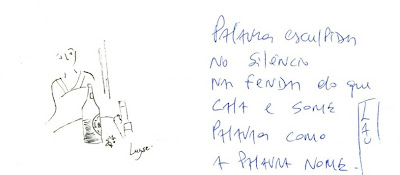 PALAVRA esculpida
NO SILÊNCIO
NA FENDA do que
CALA e SOME
PALAVRA COMO
A PALAVRA NOME.
LAU